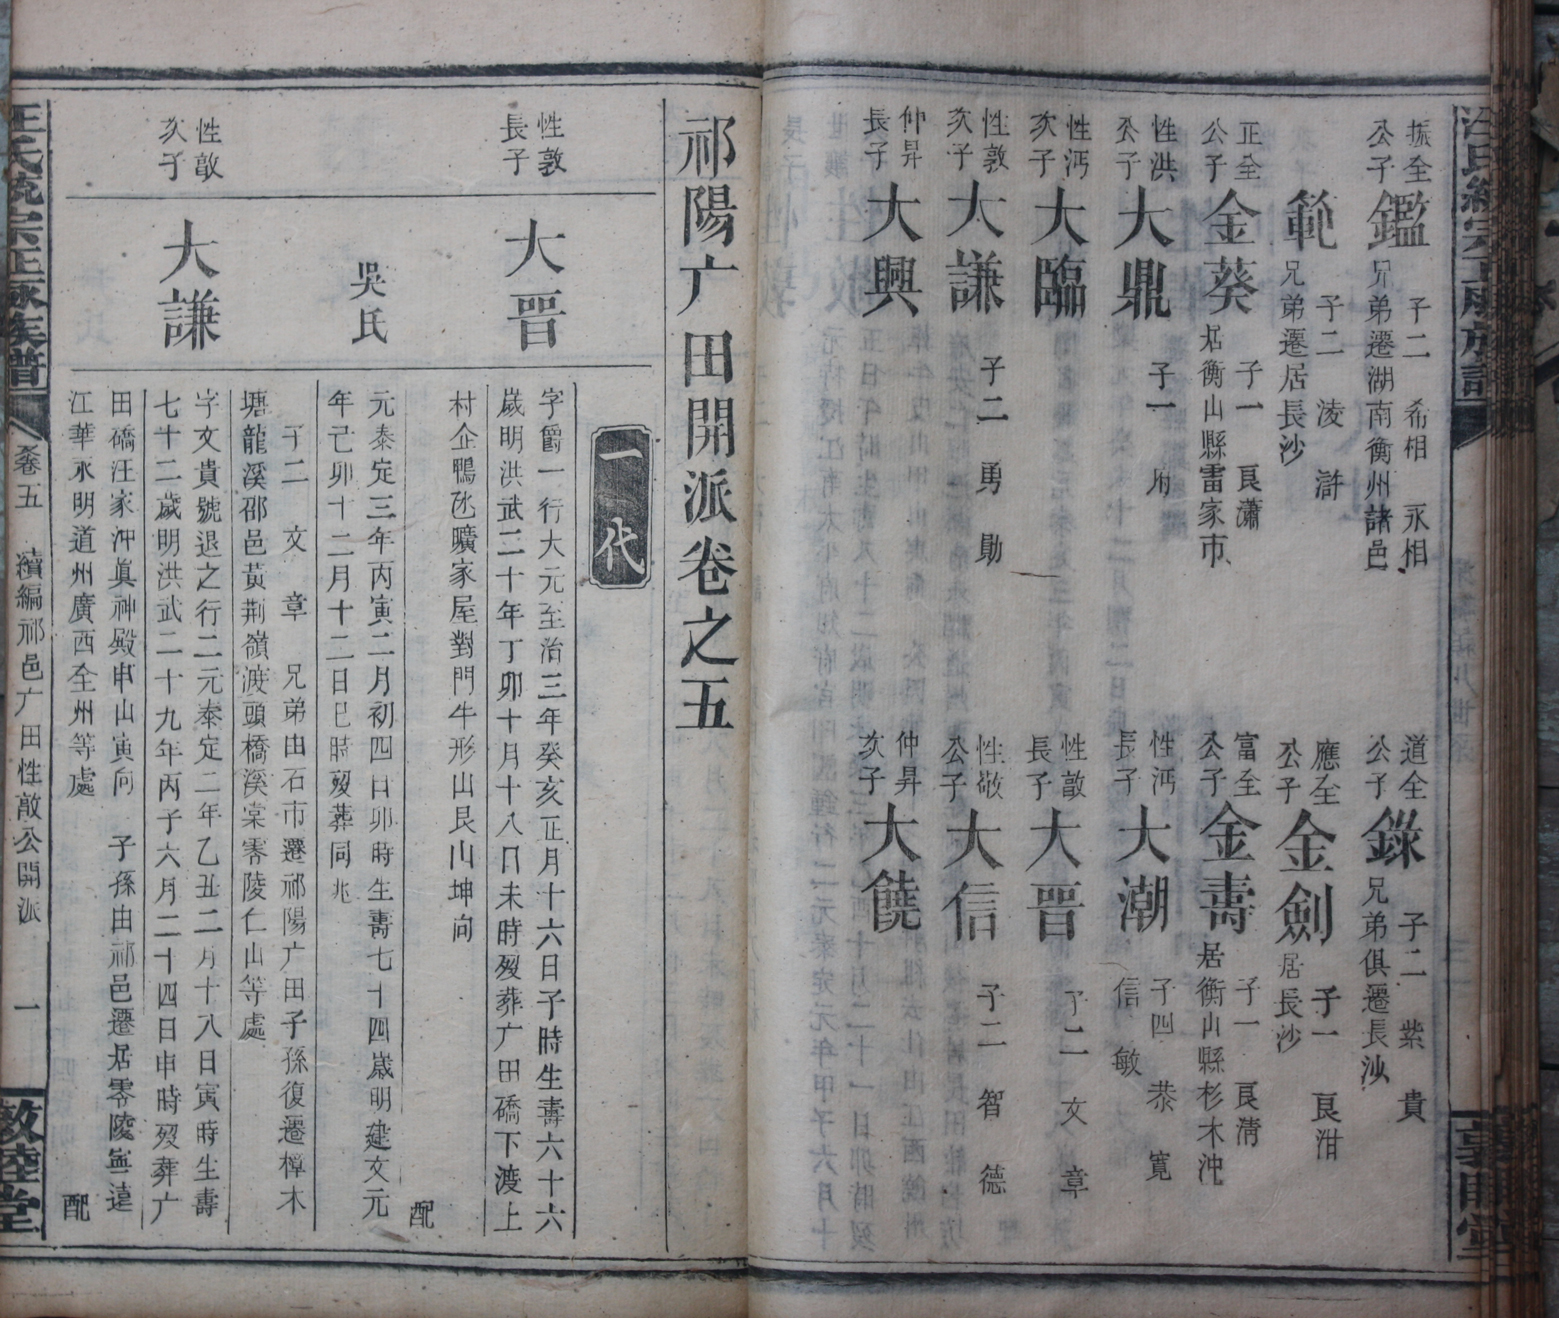 振全公子 鑑 子二 希相 永相
兄弟遷湖南衡州諸邑
範 子二 淩 滸
兄弟遷居長沙
正全公子 金葵 子一 良瀟
居衡山縣雷家市
性洪公子 大鼎 子一
性沔次子 大臨
性敦次子 大謙 子二 勇 勛
仲昇長子 大興
道全公子 錄 子二 紫 貴
兄弟俱遷長沙
應全公子 金劍 子一 良泔
居長沙
富全公子 金壽 子一 良清
居衡山縣杉木沖
性沔長子 大潮 子四 恭 寬 信 敏
性敦長子 大晋 子二 文 章
性敬公子 大信 子二 智 德
仲昇次子 大饒
祁陽广田開派卷之五
一代
性敦長子
大晋
字爵一行大元至治三年癸亥正月十六日子時生壽六十六
歲明洪武二十年丁卯十月十八日未時歿葬广田礄下渡上
村企鴨氹曠家屋對門牛形山艮山坤向
配
吳氏
元泰定三年丙寅二月初四日卯時生壽七十四歲明建文元
年己卯十二月十二日巳時歿葬同兆
子二 文 章 兄弟由石市遷祁陽广田子孫復遷樟木
塘龍溪邵邑黃荆嶺渡頭橋溪棠零陵仁山等處
性敦次子
大謙
字文貴號退之行二元泰定二年乙丑二月十八日寅時生壽
七十二歲明洪武二十九年丙子六月二十四日申時歿葬广
田礄汪家沖眞神殿申山寅向 子孫由祁邑遷居零陵寧遠
江華永明道州廣西全州等處
配
汪氏統宗正脉族譜
卷五
續編祁邑广田性敵公開派
一
敦睦堂